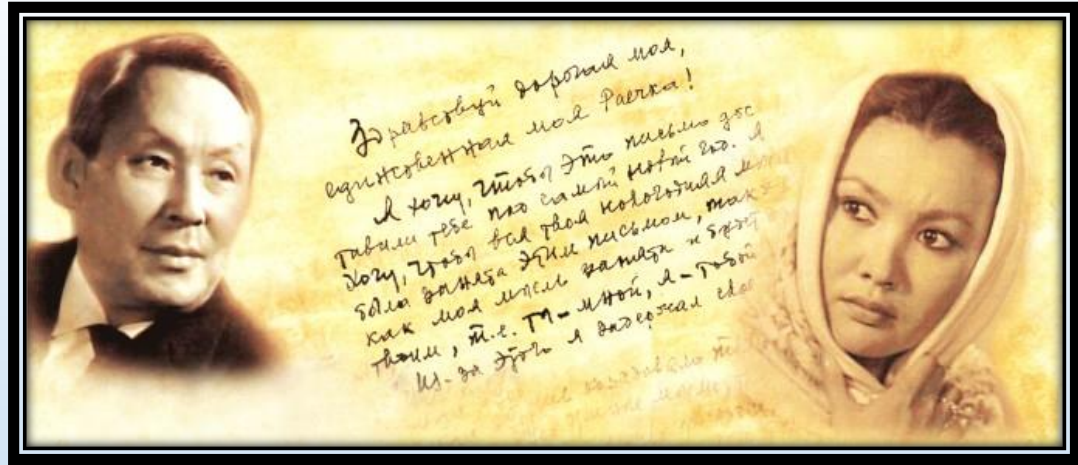 Здравствуй дорогая моя,
единственная моя Раечка!
Я хочу, чтобы это письмо дос
тавили тебе под самый новый год. Я
хочу, чтобы вся твоя новогодняя
была занята этим письмом, так
как моя мысль занята и будет
твоим, т.е. ты - мной, я - тобой
Из-за этого я задержал